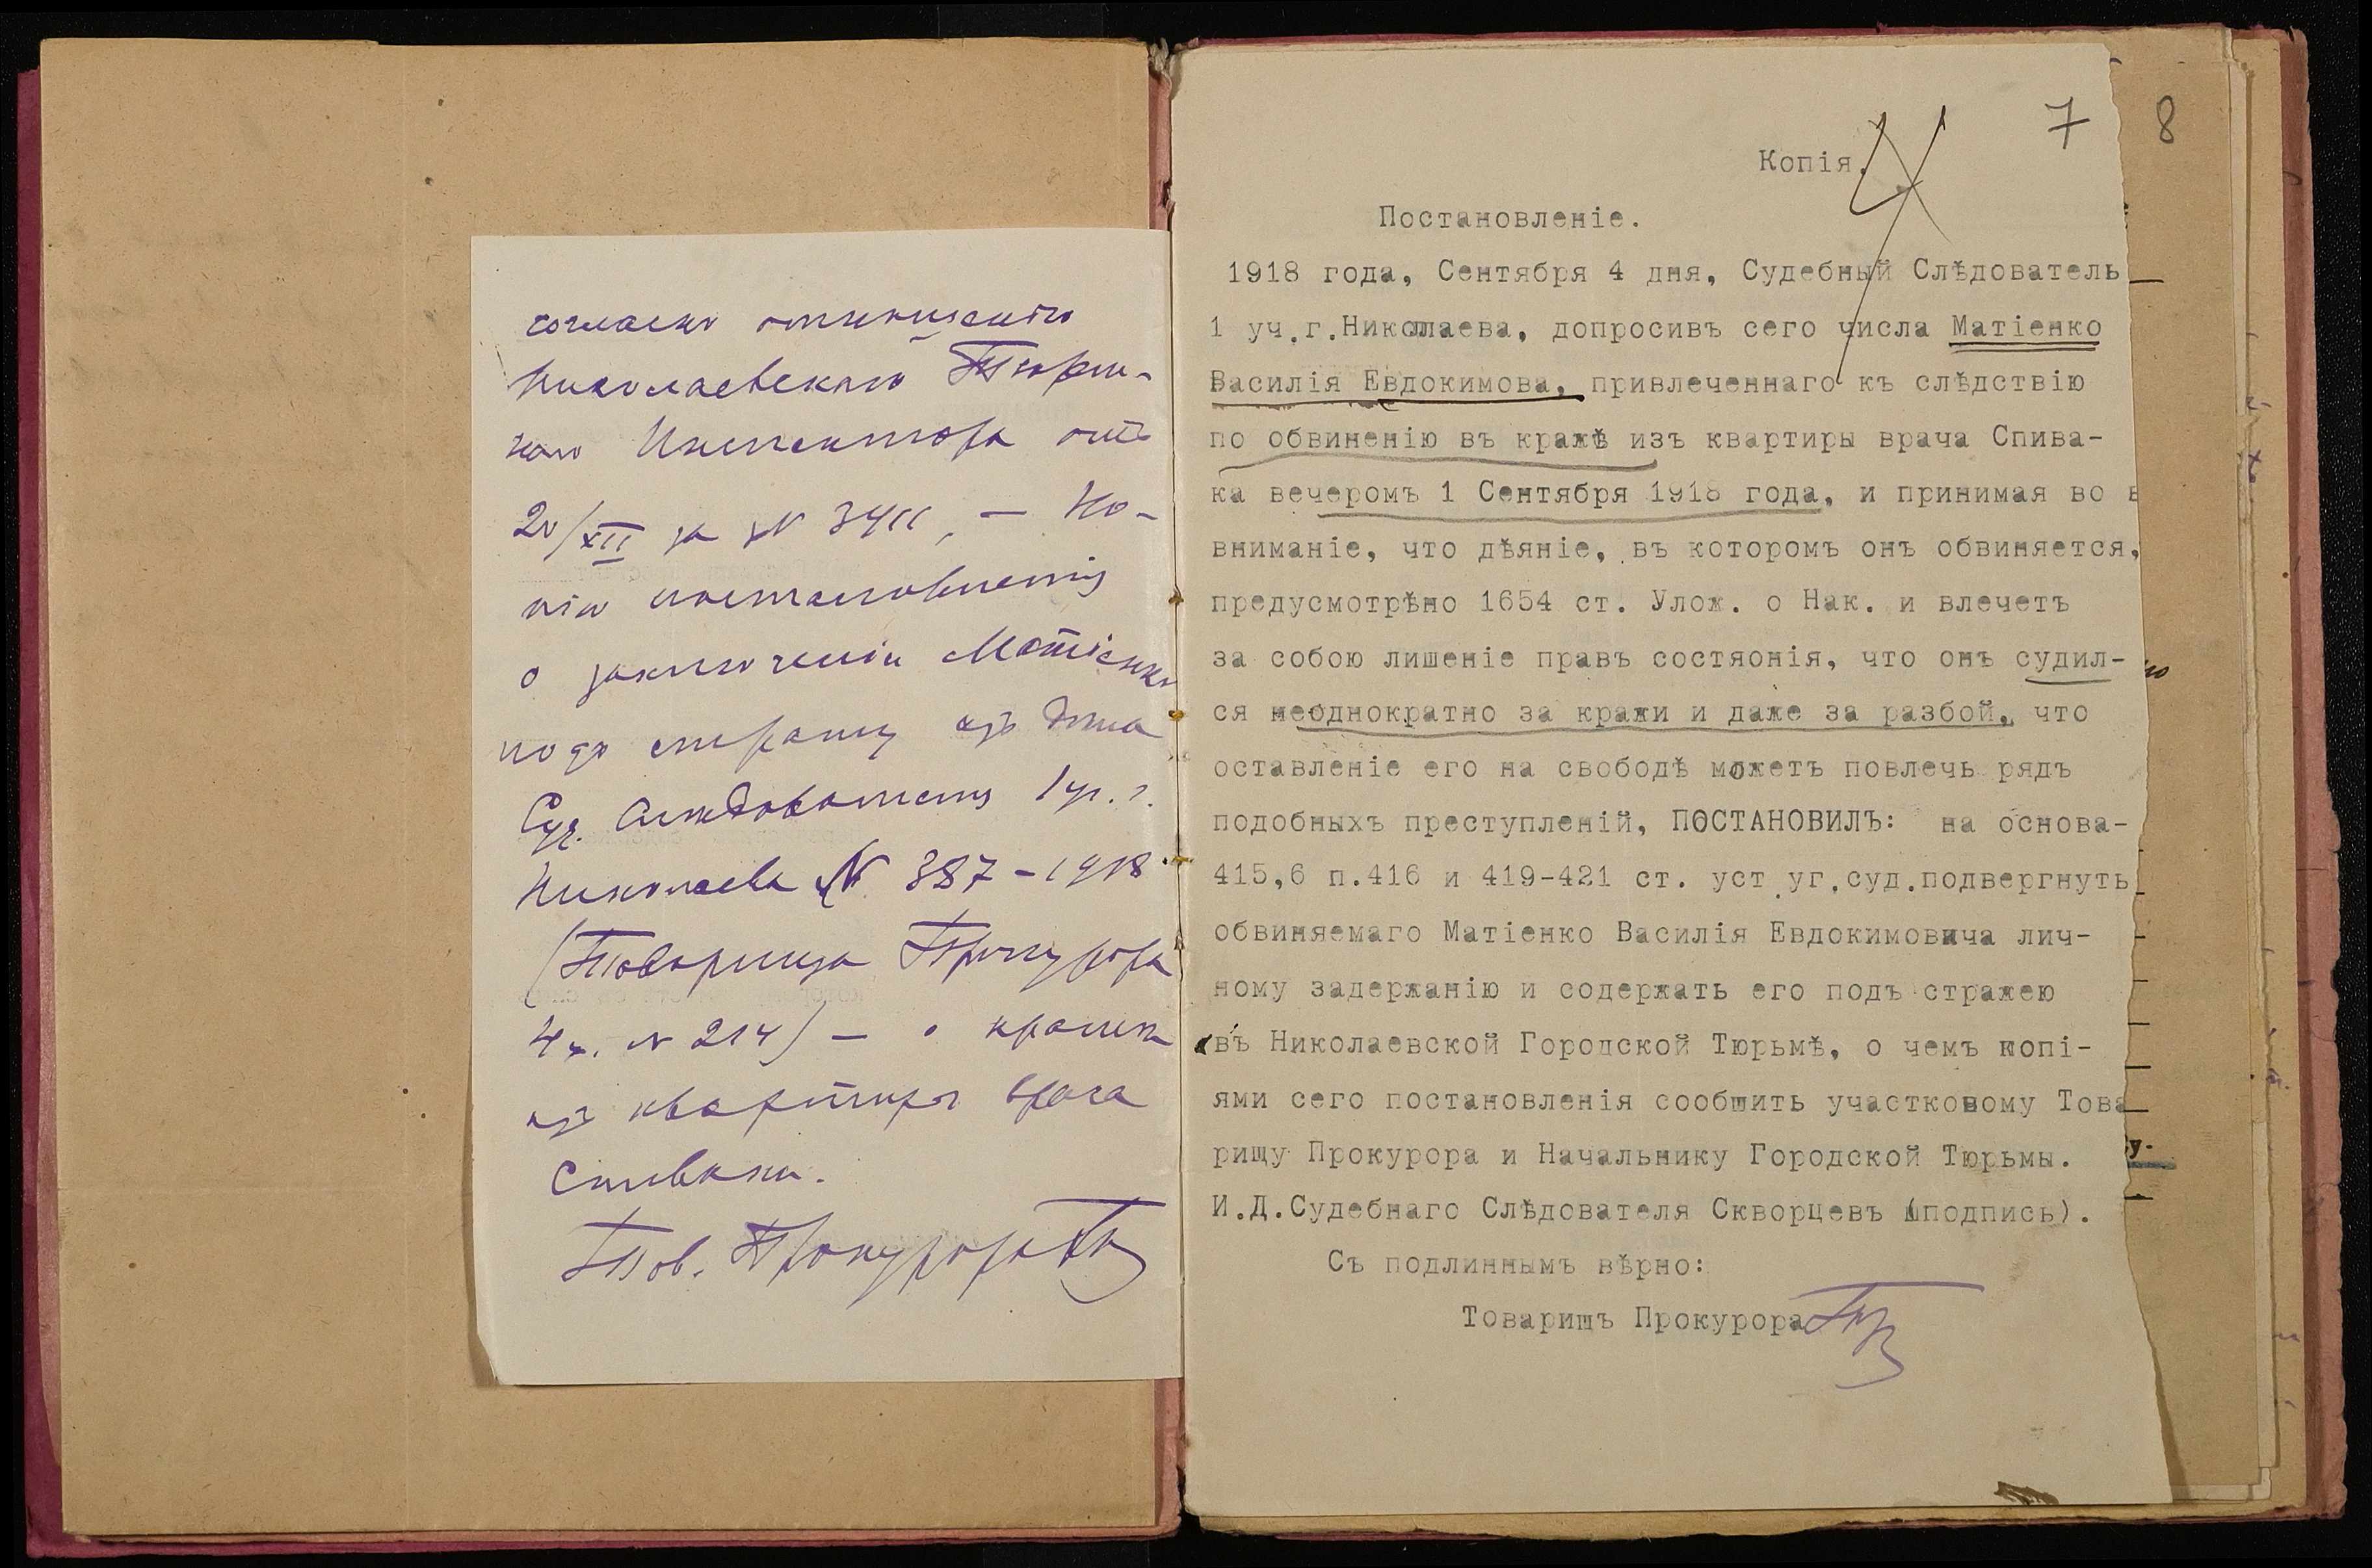 согласно отношенію
Николаевскаго Тюрем-
наго Инспектора отъ
20/XII за № 3411, – Ко-
пію постановленія
о заключеніи Матіенко
подъ стражу изъ дѣла
Суд. Слѣдователя 1 уч. г.
Николаева № 387 – 1918
(Товарища Прокурора
4 у. № 214) – о кражѣ
изъ квартиры врача
Спивака.
Тов. Прокурора
7 8
Копія.
Постановленіе.
1918 года, Сентября 4 дня, Судебный Слѣдователь
1 уч.г.Николаева, допросивъ сего числа Матіенко
Василія Евдокимова, привлеченнаго къ слѣдствію
по обвиненію въ кражѣ изъ квартиры врача Спива-
ка вечеромъ 1 Сентября 1918 года, и принимая во в
вниманіе, что дѣяніе, въ которомъ онъ обвиняется,
предусмотрѣно 1654 ст. Улож. о Нак. и влечетъ
за собою лишеніе правъ состяонія, что онъ судил-
ся неоднократно за кражи и даже за разбой, что
оставленіе его на свободѣ можетъ повлечь рядъ
подобныхъ преступленій, ПОСТАНОВИЛЪ: на основа-
415,6 п.416 и 419-421 ст. уст уг.суд.подвергнуть
обвиняемаго Матіенко Василія Евдокимовича лич-
ному задержанію и содержать его подъ стражею
въ Николаевской Городской Тюрьмѣ, о чемъ копі-
ями сего постановленія сообшить участковому Това
рищу Прокурора и Начальнику Городской Тюрьмы.
И.Д.Судебнаго Слѣдователя Скворцевъ (подпись).
Съ подлиннымъ вѣрно:
Товаришъ Прокурора